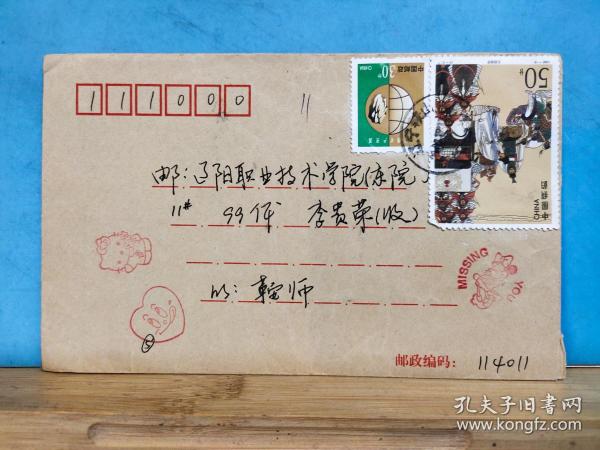 111000
11
30分
中国邮政
CHINA
50分
中国邮政
CHINA
邮：辽阳职业技术学院(东院)
11# 99作 李贵荣(收)
MISSING YOU
鞍师
5
邮政编码：114011
孔夫子旧书网
www.kongfz.com